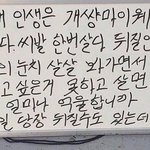 내 인생은 개상마이웨
다. 씨발 한번살다 뒤질인
의 눈치 살살 봐가면서
고 싶은거 못하고 살면
얼마나 억울합니까
일 당장 뒤질수도 있는데